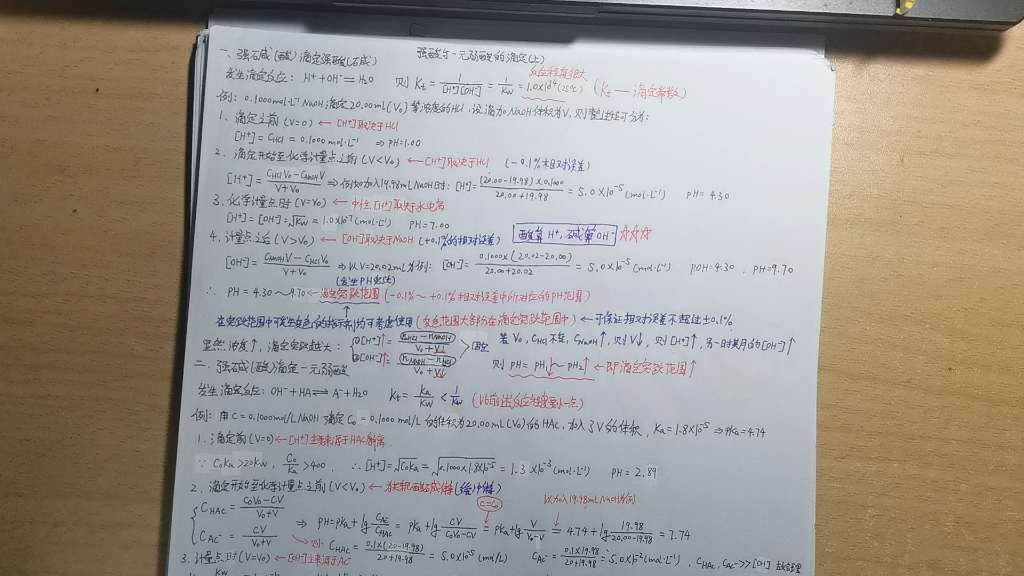 强酸与一元弱酸的滴定(上)
一、强碱(酸)滴定强酸(碱)
发生滴定反应: H⁺+OH⁻=H₂O 则 Kt = 1/[H⁺][OH⁻] = 1/Kw = 1.0×10¹⁴ (25℃) (Kt — 滴定常数)
反应程度很大
例: 0.1000mol·L⁻¹ NaOH 滴定 20.00mL(V₀) 等浓度的HCl, 设滴加NaOH体积为V, 则
1. 滴定之前 (V=0) ← [H⁺]取决于HCl
[H⁺] = CHCl = 0.1000mol·L⁻¹ ⇒ pH=1.00
2. 滴定开始至化学计量点之前 (V<V₀) ← [H⁺]取决于HCl (-0.1%相对误差)
[H⁺] = CHClV₀-CNaOHV / V+V₀ ⇒ 例如加入19.98mL NaOH时: [H⁺] = (20.00-19.98)×0.1000 / 20.00+19.98 = 5.0×10⁻⁵ (mol·L⁻¹) pH=4.30
3. 化学计量点时 (V=V₀) ← 中性, [H⁺]取决于水电离
[H⁺] = [OH⁻] = √Kw = 1.0×10⁻⁷ (mol·L⁻¹) pH=7.00
4. 计量点之后 (V>V₀) ← [OH⁻]取决于NaOH (+0.1%的相对误差) 酸算H⁺, 碱算OH⁻ ☆☆☆
[OH⁻] = CNaOHV-CHClV₀ / V+V₀ ⇒ 以V=20.02mL为例: [OH⁻] = 0.1000×(20.02-20.00) / 20.00+20.02 = 5.0×10⁻⁵ (mol·L⁻¹) pOH=4.30, pH=9.70
(发生PH突跃)
∴ PH=4.30~9.70 ← 滴定突跃范围 (-0.1%~+0.1%相对误差中所对应的PH范围)
在突跃范围中可发生变色的指示剂均可考虑使用 (变色范围大部分在滴定突跃范围中) ← 可保证相对误差不超过±0.1%
显然, 浓度↑, 滴定突跃越大: ①[H⁺]↑ = nHCl-nNaOH / V₀+V↓ 固定 若V₀, CHCl不变, CNaOH↑, 则V↓, 则[H⁺]↑, 另一时其月的[OH⁻]↑
②[OH⁻]↑ = nNaOH-nHCl / V₀+V↓ 则 PH=PH₁↓~PH₂↑ ← 即滴定突跃范围↑
二、强碱(酸)滴定一元弱酸
发生滴定反应: OH⁻+HA⇌A⁻+H₂O Kt = Ka/Kw < 1/Kw
例: 用C=0.1000mol/L NaOH 滴定C₀=0.1000mol/L 的体积为20.00mL(V₀)的HAc, 加入了V的体积, Ka=1.8×10⁻⁵ ⇒ pKa=4.74
1. 滴定前 (V=0) ← [H⁺]主要来源于HAc解离
∵ C₀Ka>20Kw, C₀/Ka>400, ∴ [H⁺] = √C₀Ka = √0.1000×1.8×10⁻⁵ = 1.3×10⁻³ (mol·L⁻¹) PH=2.89
2. 滴定开始至化学计量点之前 (V<V₀) ← (缓冲体)
C=C₀ 以加入19.98mL NaOH为例
CHAc = C₀V₀-CV / V₀+V
CAc⁻ = CV / V₀+V
⇒ PH=pKa+lg CAc⁻/CHAc = pKa+lg CV/C₀V₀-CV = pKa+lg V/V₀-V = 4.74+lg 19.98/20.00-19.98 = 7.74
则: CHAc = 0.1×(20-19.98) / 20+19.98 = 5.0×10⁻⁵ (mol/L) CAc⁻ = 0.1×19.98 / 20+19.98 = 5.0×10⁻² (mol·L⁻¹), CHAc, CAc⁻>>[OH⁻]
3. 计量点时 (V=V₀) ← [OH⁻]主来源于Ac⁻